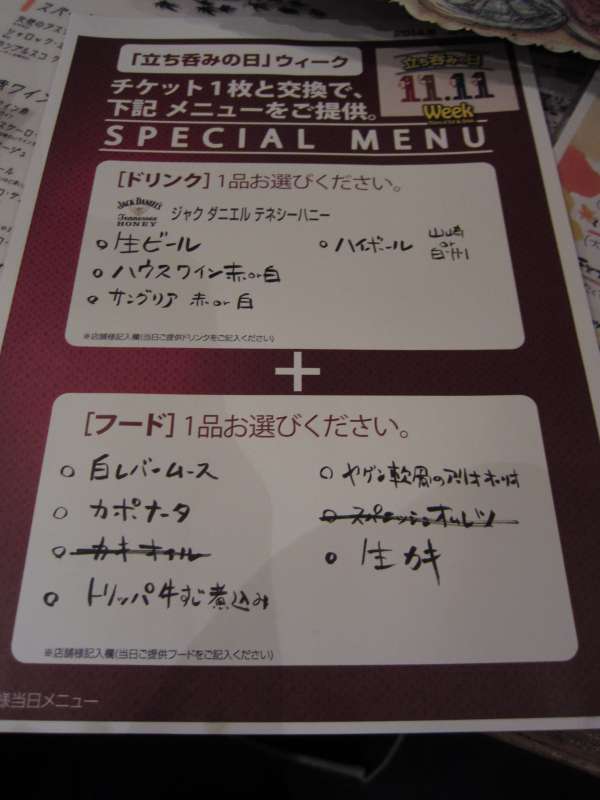 「立ち呑みの日」ウィーク
チケット1枚と交換で、
下記 メニューをご提供。
立ち呑みの日
11.11
Week
SPECIAL MENU
[ドリンク] 1品お選びください。
JACK DANIEL'S
Tennessee
HONEY
ジャック ダニエル テネシーハニー
生ビール
ハイボール 山崎 or 白州
ハウスワイン赤or白
サングリア 赤or白
※店舗様記入欄(当日ご提供ドリンクをご記入ください)
+
[フード] 1品お選びください。
白レバームース
ヤゲン軟骨のアリオオーリオ
カポナータ
スパニッシュオムレツ
カキオイル
生カキ
トリッパ牛すじ煮込み
※店舗様記入欄(当日ご提供フードをご記入ください)
様当日メニュー